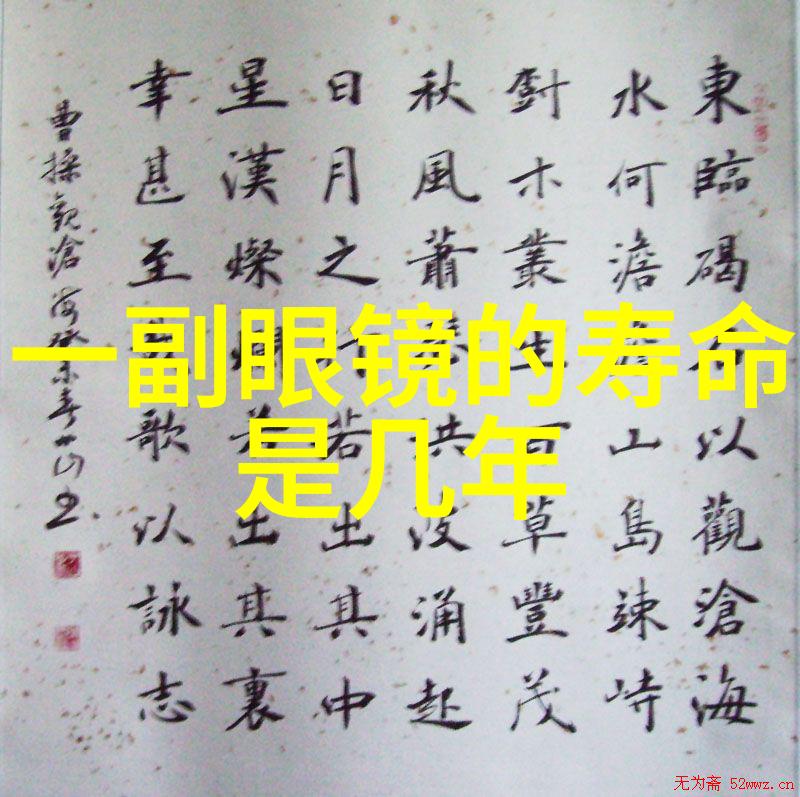 一副眼镜的寿命
是几年
東臨碣石以觀滄海
水何澹澹山島竦峙
尌木叢生百草豐茂
秋風蕭瑟洪波涌起
日月之行若出其中
星漢燦爛若出其裏
幸甚至哉歌以詠志
曹操观沧海癸未春
无为斋 52wwz.cn